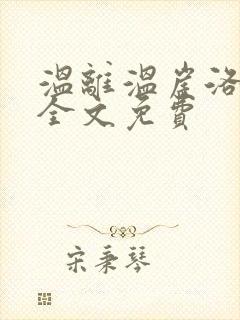 温離温崖洛
全文免費
宋秉琴